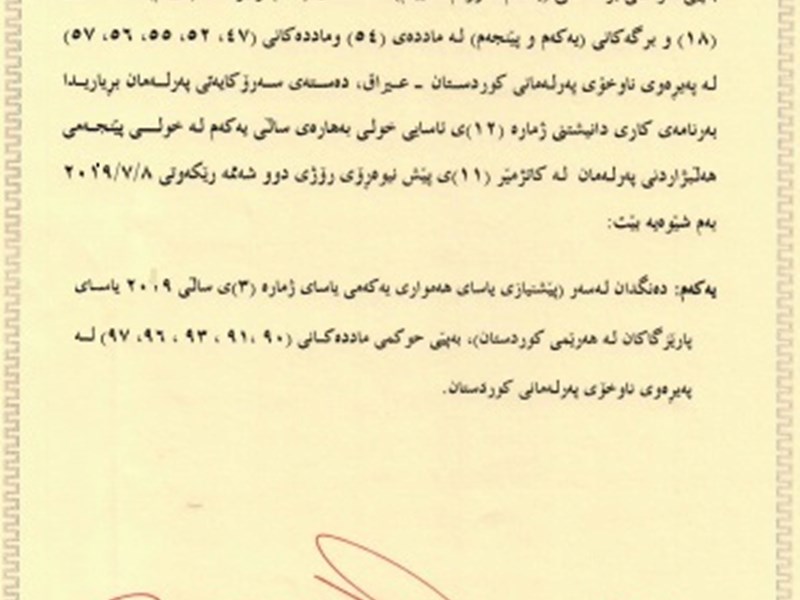 (١٨) و برگەکانی (یەکەم و پێنجەم) لە ماددەی (٥٤) وماددەکانی (٤٧، ٥٢، ٥٥، ٥٦، ٥٧)
لە پەیڕەوی ناوخۆی پەرلەمانی کوردستان ـ عیراق، دەستەی سەرۆکایەتی پەرلەمان بڕیاریدا
بەرنامەی کاری دانیشتنی ژمارە (١٢)ی ئاسایی خولی بەهارەی ساڵی یەکەم لە خولی پێنجەمی
هەڵبژاردنی پەرلەمان لە کاتژمێر (١١)ی پێش نیوەڕۆی رۆژی دوو شەممە رێکەوتی ٢٠١٩/٧/٨
بەم شێوەیە بێت:
یەکەم: دەنگدان لەسەر (پێشنیازی یاسای هەمواری یەکەمی یاسای ژمارە (٣)ی ساڵی ٢٠٠٩ یاسای
پارێزگاکان لە هەرێمی کوردستان)، بەپێی حوکمی ماددەکانی (٩٠، ٩١، ٩٣، ٩٦، ٩٧) لە
پەیڕەوی ناوخۆی پەرلەمانی کوردستان.